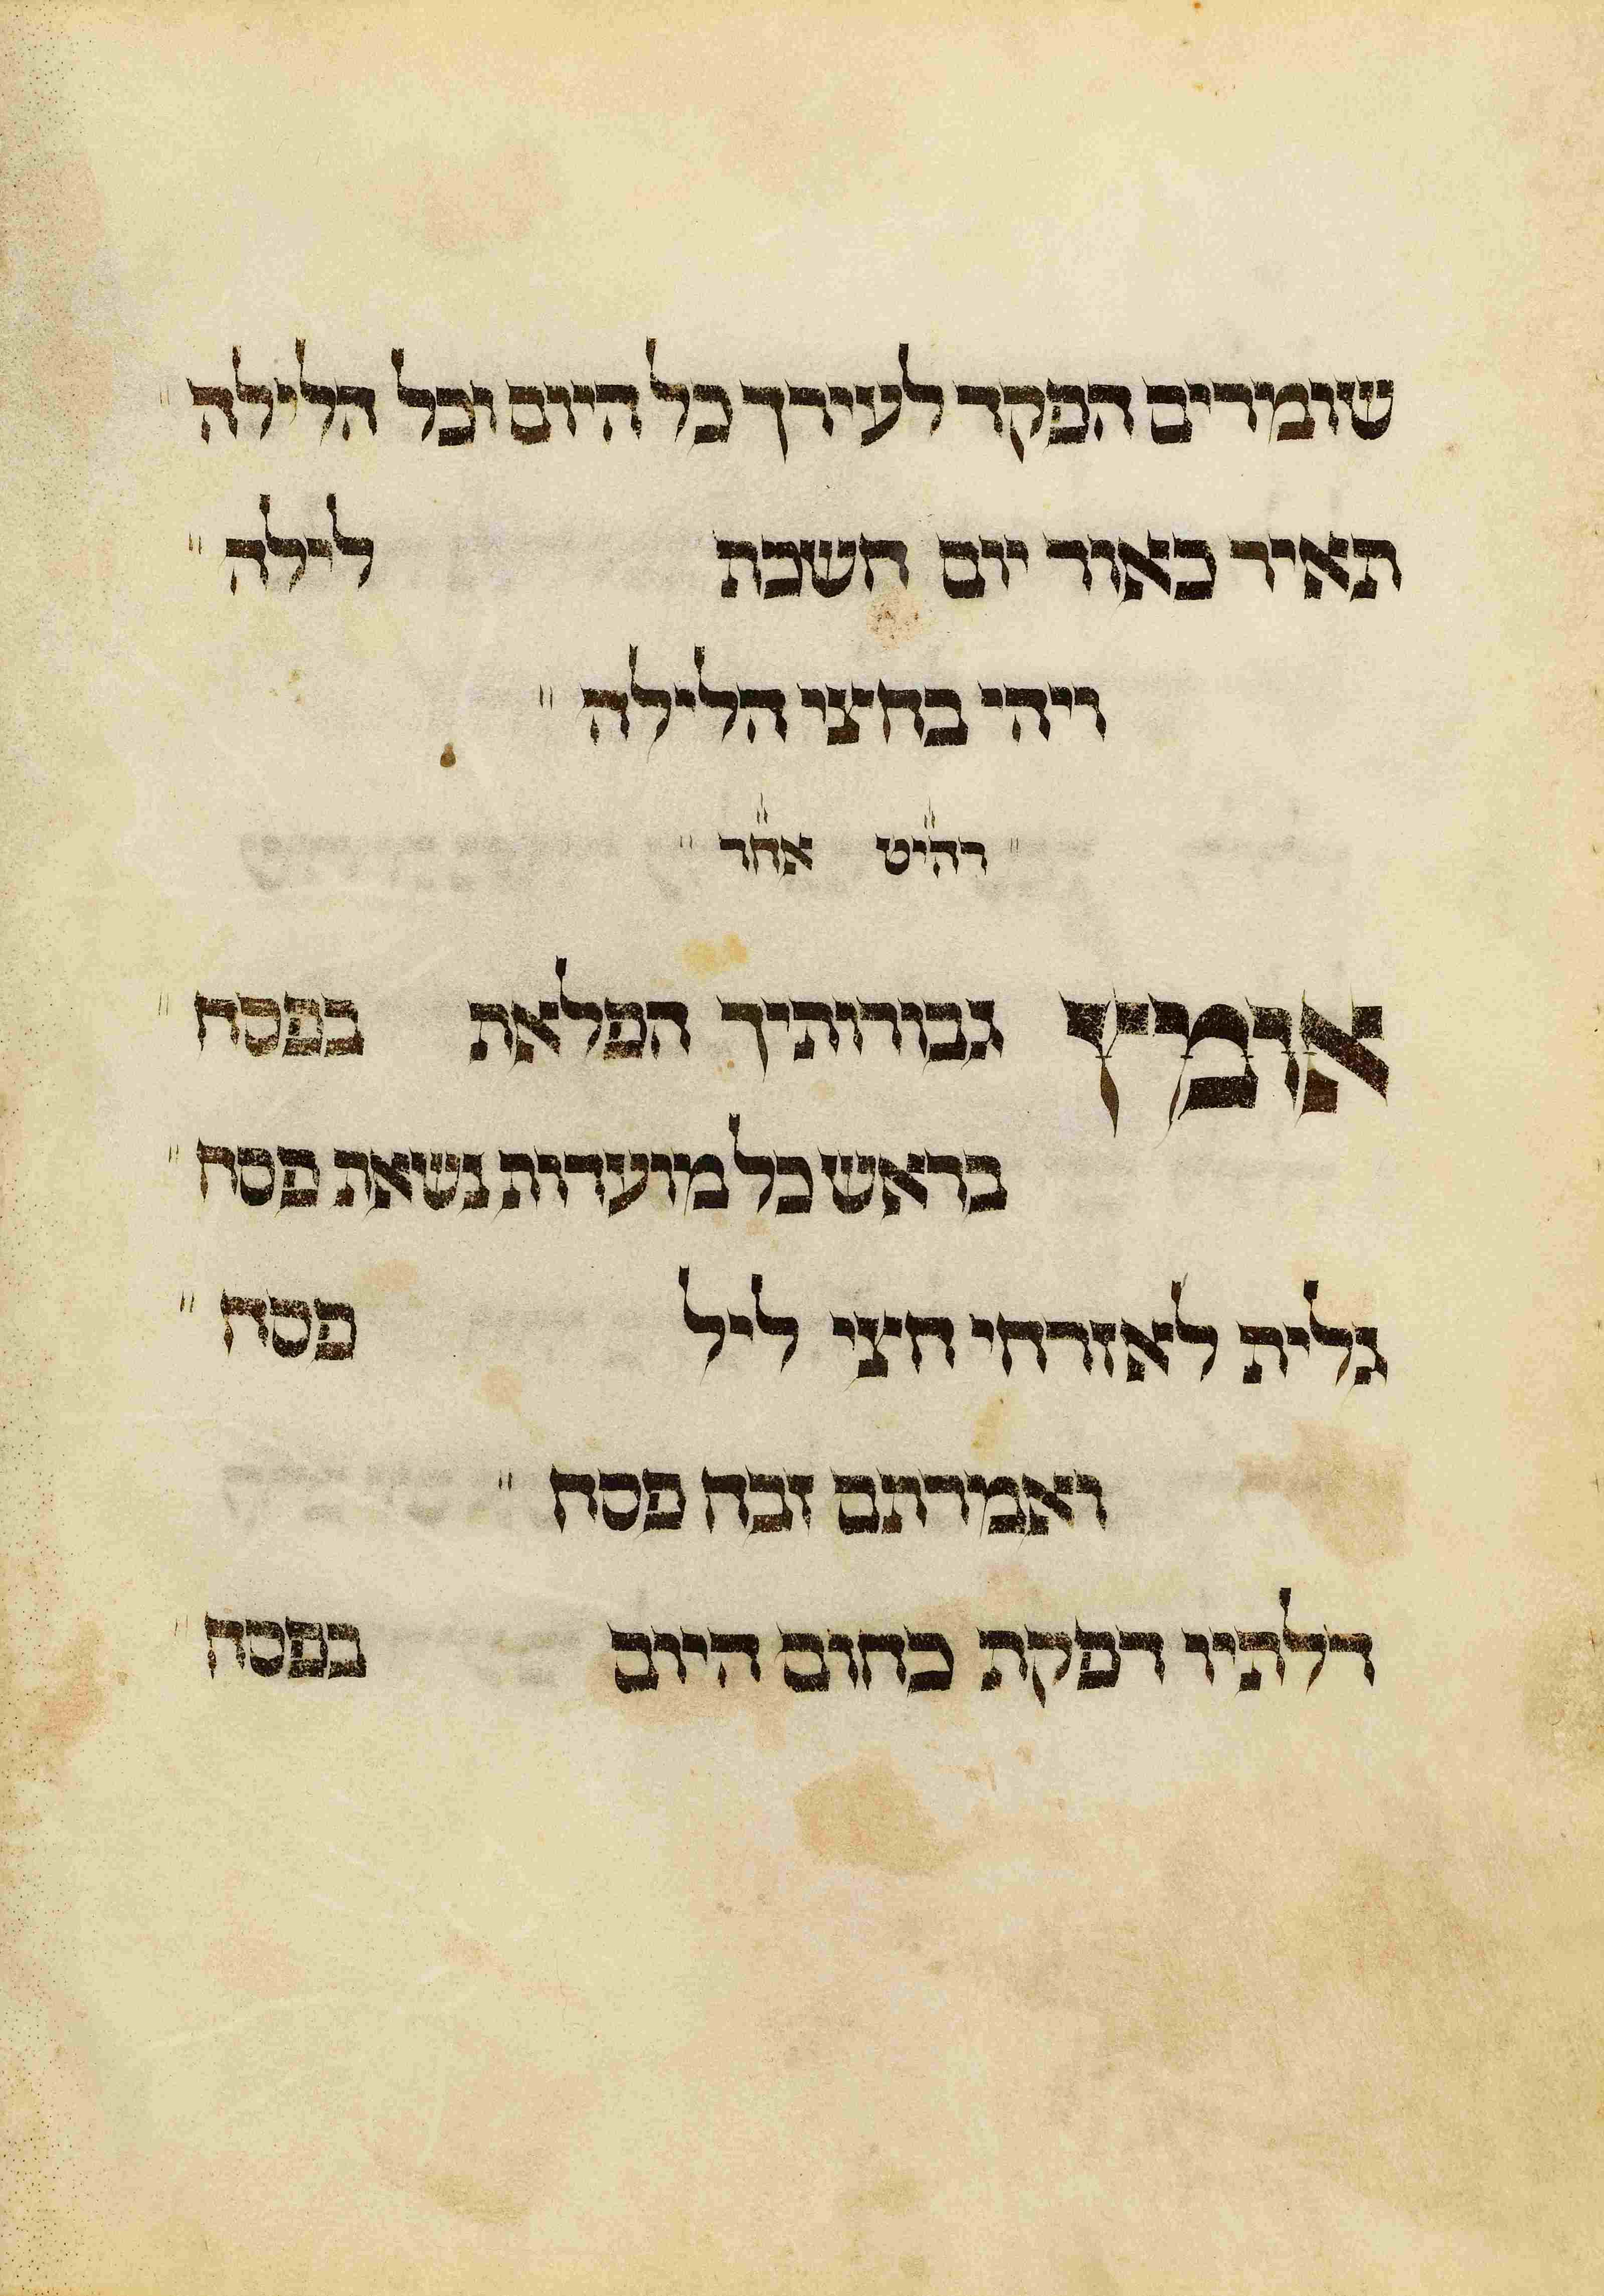 שומרים הפקד לעירך כל היום וכל הלילה "
תאיר כאור יום חשכת לילה "
ויהי בחצי הלילה "
" רהיט אחר "
אומץ גבורותיך הפלאת בפסח "
בראש כל מועדות נשאת פסח "
גלית לאזרחי חצי ליל פסח "
ואמרתם זבח פסח "
דלתיו דפקת כחום היום בפסח "